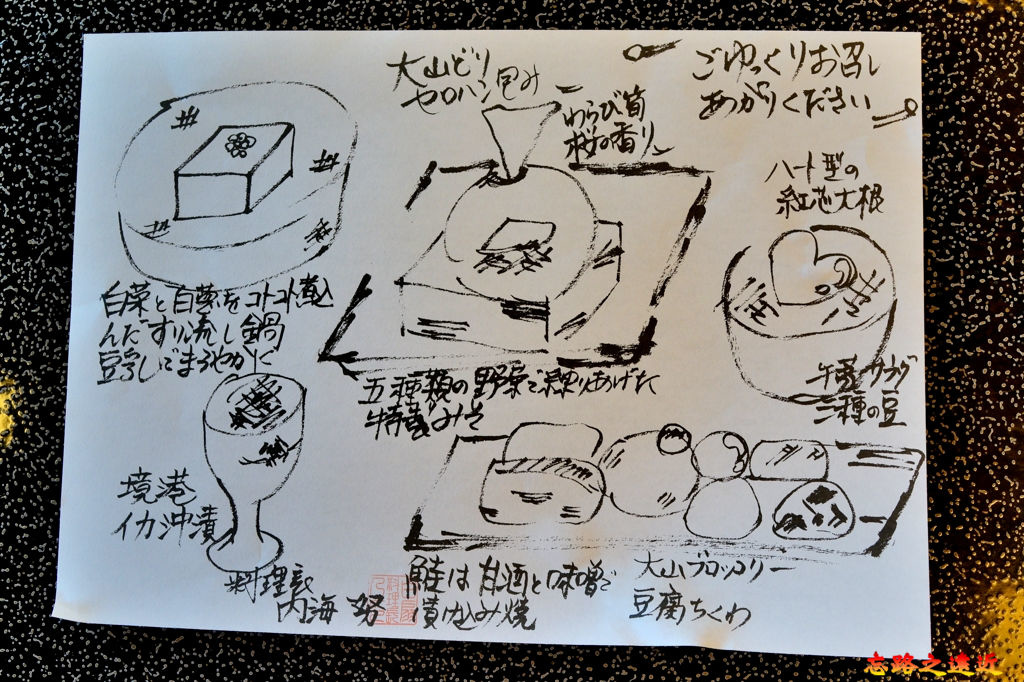 ごゆっくりお召し
あがりください
大山どり
セロハン包み
わらび筍
桜の香り
ハート型の
紅芯大根
白菜と白葱をコトコト煮込
んだすり流し鍋
豆乳してまろやかに
五種類の野菜で練りあげた
特製みそ
牛蒡サラダ
三種の豆
境港
イカ沖漬
鮭は甘酒と味噌で
漬け込み焼
大山ブロッコリー
豆腐ちくわ
料理長
内海 努
忘路之遠近